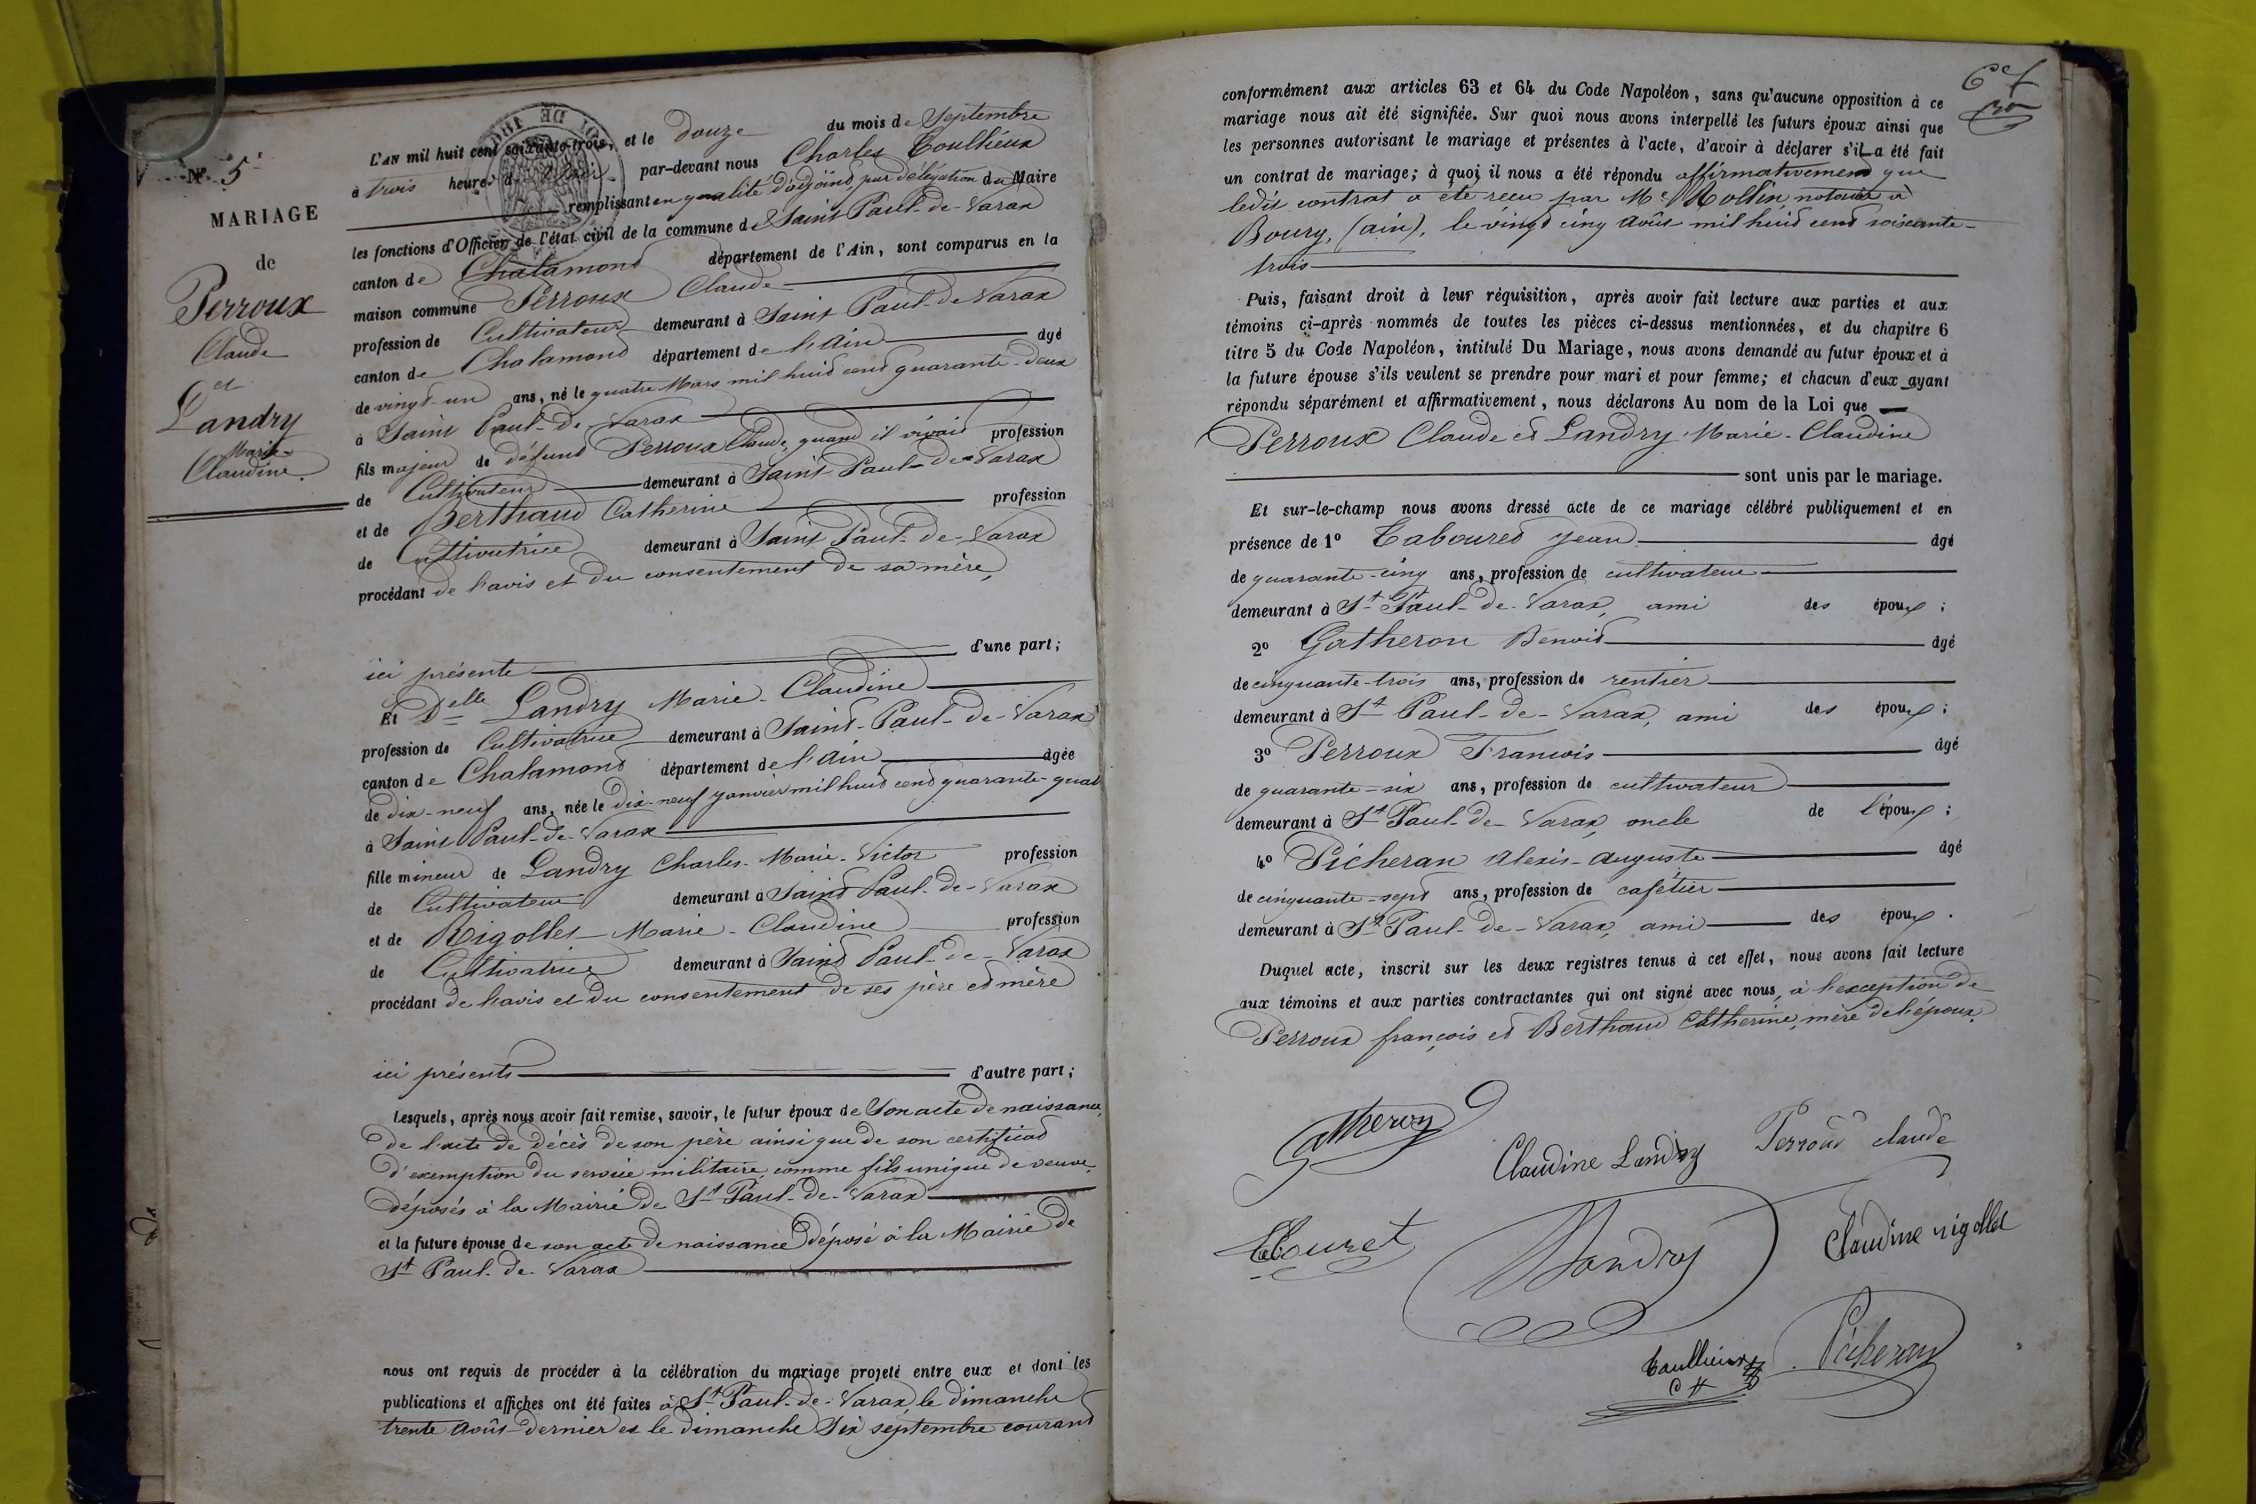 N° 5
MARIAGE
de
Perroux
Claude
et
Landry
Marie-
Claudine.
L'AN mil huit cent soixante-trois, et le douze du mois de Septembre
à trois heures du par-devant nous Charles Toullieux
remplissant en qualité d'adjoint par délégation du Maire
les fonctions d'Officier de l'état civil de la commune de Saint Paul-de-Varax
canton de Chalamont département de l'Ain, sont comparus en la
maison commune Perroux Claude
profession de Cultivateur demeurant à Saint Paul-de-Varax
canton de Chalamont département de l'Ain âgé
de vingt-un ans, né le quatre Mars mil huit cent quarante-deux
à Saint Paul-de-Varax
fils majeur de défunt Perroux Claude, quand il vivait profession
de Cultivateur demeurant à Saint-Paul-de-Varax
et de Berthaud Catherine profession
de Cultivatrice demeurant à Saint Paul-de-Varax
procédant de l'avis et du consentement de sa mère,
ici présente d'une part;
Et Delle Landry Marie-Claudine
profession de Cultivatrice demeurant à Saint-Paul-de-Varax
canton de Chalamont département de l'Ain âgée
de dix-neuf ans, née le dix-neuf janvier mil huit cent quarante-quat
à Saint Paul-de-Varax
fille mineure de Landry Charles-Marie-Victor profession
de Cultivateur demeurant à Saint Paul-de-Varax
et de Rigollet Marie-Claudine profession
de Cultivatrice demeurant à Saint Paul-de-Varax
procédant de l'avis et du consentement de ses père et mère
ici présents d'autre part;
Lesquels, après nous avoir fait remise, savoir, le futur époux de Son acte de naissance,
de l'acte de décès de son père ainsi que de son certificat
d'exemption du service militaire comme fils unique de veuve,
déposés à la Mairie de St Paul-de-Varax
et la future épouse de son acte de naissance déposé à la Mairie de
St Paul-de-Varax
nous ont requis de procéder à la célébration du mariage projeté entre eux et dont les
publications et affiches ont été faites à St Paul-de-Varax, le dimanche
trente Août dernier et le dimanche Six septembre courant
conformément aux articles 63 et 64 du Code Napoléon, sans qu'aucune opposition à ce
mariage nous ait été signifiée. Sur quoi nous avons interpellé les futurs époux ainsi que
les personnes autorisant le mariage et présentes à l'acte, d'avoir à déclarer s'il a été fait
un contrat de mariage; à quoi il nous a été répondu affirmativement que
ledit contrat a été reçu par Me Rollin, notaire à
Bourg, (ain), le vingt cinq août mil huit cent soixante-
trois
Puis, faisant droit à leur réquisition, après avoir fait lecture aux parties et aux
témoins ci-après nommés de toutes les pièces ci-dessus mentionnées, et du chapitre 6
titre 5 du Code Napoléon, intitulé Du Mariage, nous avons demandé au futur époux et à
la future épouse s'ils veulent se prendre pour mari et pour femme; et chacun d'eux ayant
répondu séparément et affirmativement, nous déclarons Au nom de la Loi que
Perroux Claude et Landry Marie-Claudine
sont unis par le mariage.
Et sur-le-champ nous avons dressé acte de ce mariage célébré publiquement et en
présence de 1° Tabouret Jean âgé
de quarante-cinq ans, profession de cultivateur
demeurant à St Paul-de-Varax, ami des époux;
2° Gatheron Benoit âgé
de cinquante-trois ans, profession de rentier
demeurant à St Paul-de-Varax, ami des époux;
3° Perroux Francois âgé
de quarante-six ans, profession de cultivateur
demeurant à St Paul-de-Varax, oncle de l'époux;
4° Picheran Alexis-Auguste âgé
de cinquante-sept ans, profession de cafetier
demeurant à St Paul-de-Varax, ami des époux.
Duquel acte, inscrit sur les deux registres tenus à cet effet, nous avons fait lecture
aux témoins et aux parties contractantes qui ont signé avec nous, à l'exception de
Perroux françois et Berthaud Catherine, mère de l'époux.
Gatheron
Claudine Landry Perroud claude
Landry Claudine rigollet
Toullieux
Picheran